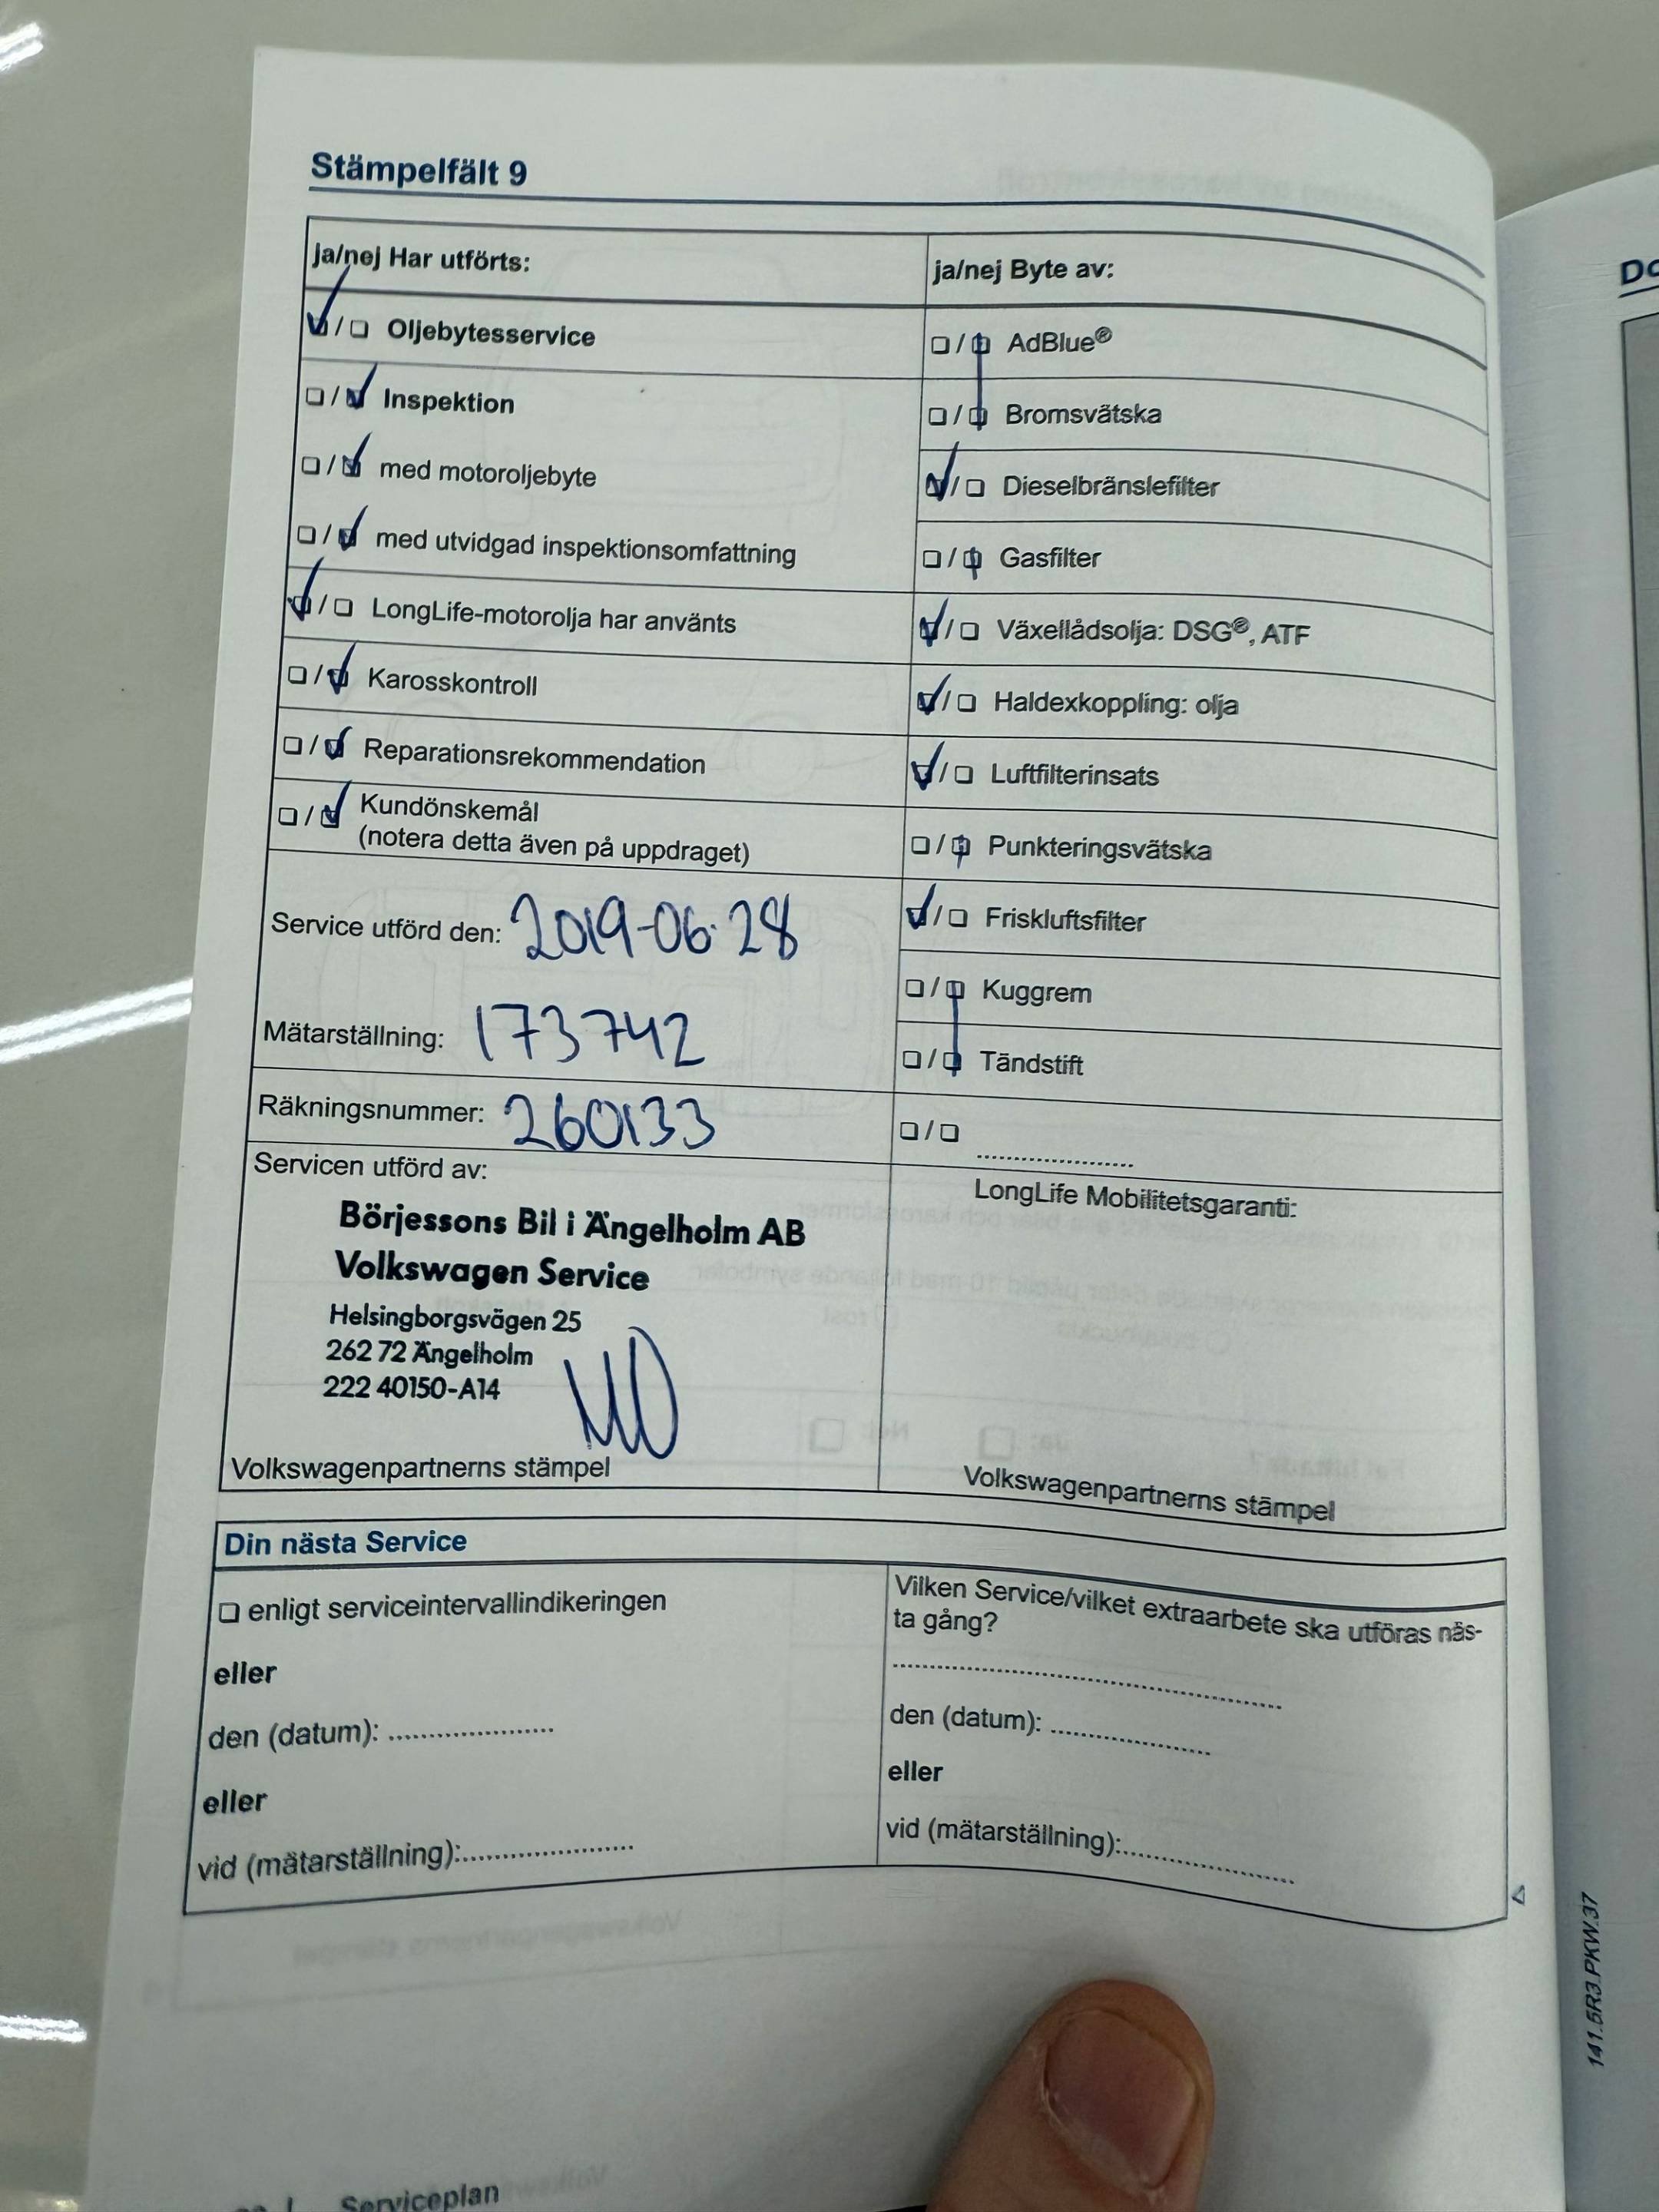 Stämpelfält 9
ja/nej Har utförts:
☑/☐ Oljebytesservice
☐/☑ Inspektion
☐/☑ med motoroljebyte
☐/☑ med utvidgad inspektionsomfattning
☑/☐ LongLife-motorolja har använts
☐/☑ Karosskontroll
☐/☑ Reparationsrekommendation
☐/☑ Kundönskemål
(notera detta även på uppdraget)
Service utförd den: 2019-06-28
Mätarställning: 173742
Räkningsnummer: 260133
Servicen utförd av:
Börjessons Bil i Ängelholm AB
Volkswagen Service
Helsingborgsvägen 25
262 72 Ängelholm
222 40150-A14
Volkswagenpartnerns stämpel
ja/nej Byte av:
☐/☑ AdBlue®
☐/☑ Bromsvätska
☑/☐ Dieselbränslefilter
☐/☑ Gasfilter
☑/☐ Växellådsolja: DSG®, ATF
☑/☐ Haldexkoppling: olja
☑/☐ Luftfilterinsats
☐/☑ Punkteringsvätska
☑/☐ Friskluftsfilter
☐/☑ Kuggrem
☐/☑ Tändstift
☐/☐ ....................
LongLife Mobilitetsgaranti:
Volkswagenpartnerns stämpel
Din nästa Service
☐ enligt serviceintervallindikeringen
eller
den (datum): ....................
eller
vid (mätarställning):....................
Vilken Service/vilket extraarbete ska utföras näs-
ta gång?
..................................................
den (datum): ....................
eller
vid (mätarställning):....................
141.5R3.PKW.37
Serviceplan